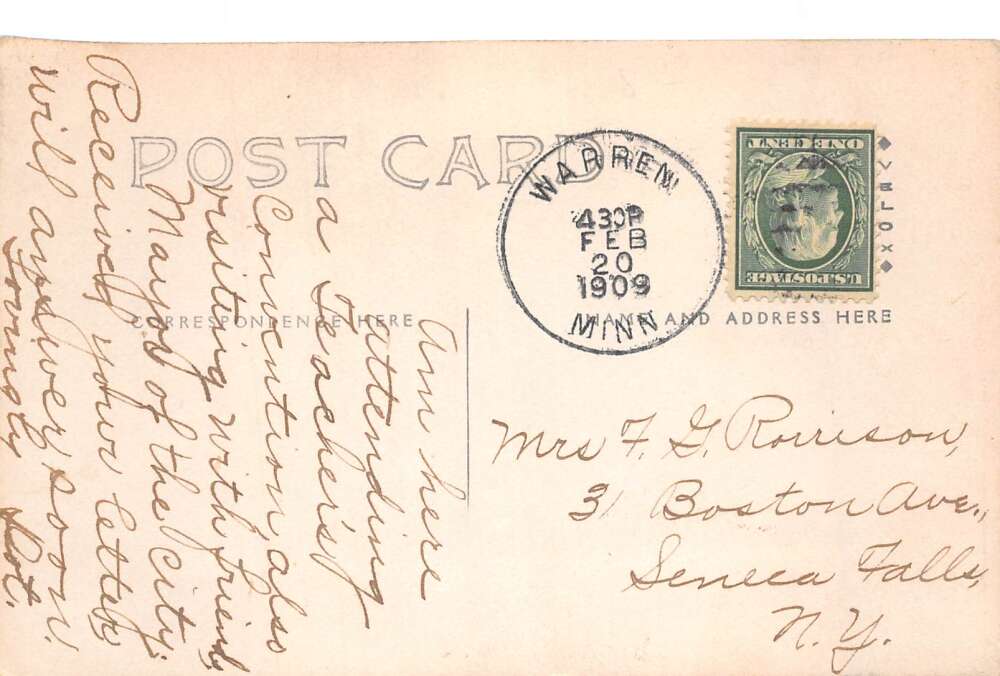 POST CARD
WARREN
430P
FEB
20
1909
MINN
ONE CENT
U.S. POSTAGE
CORRESPONDENCE HERE
NAME AND ADDRESS HERE
Am here
attending
a Teachers'
Convention, also
visiting with friend,
Mayor of the city.
Received your letter
will answer soon.
Lovingly Dot.
Mrs F. G. Rorrison,
31 Boston Ave.,
Seneca Falls,
N.Y.